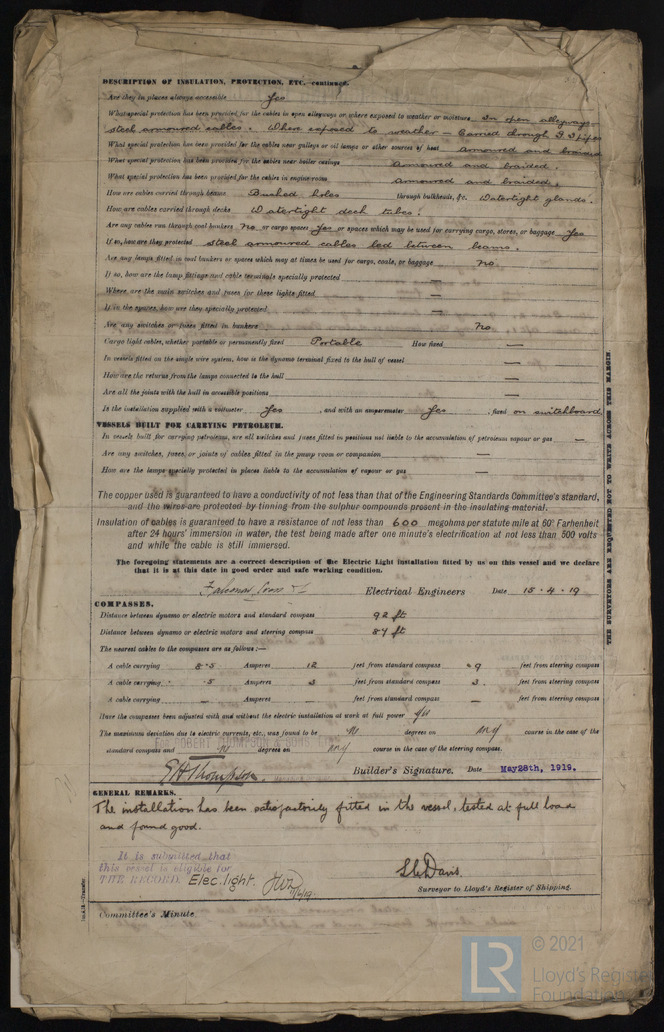 DESCRIPTION OF INSULATION, PROTECTION, ETC. continued.
Are they in places always accessible Yes
What special protection has been provided for the cables in open alleyways or where exposed to weather or moisture In open alleyways
steel armoured cables. Where exposed to weather - Carried through G I pipe
What special protection has been provided for the cables near galleys or oil lamps or other sources of heat armoured and braided
What special protection has been provided for the cables near boiler casings armoured and braided.
What special protection has been provided for the cables in engine room armoured and braided.
How are cables carried through beams Bushed holes through bulkheads, &c. Watertight glands.
How are cables carried through decks Watertight deck tubes.
Are any cables run through coal bunkers No or cargo spaces Yes or spaces which may be used for carrying cargo, stores, or baggage Yes
If so, how are they protected steel armoured cables led between beams.
Are any lamps fitted in coal bunkers or spaces which may at times be used for cargo, coals, or baggage No
If so, how are the lamp fittings and cable terminals specially protected —
Where are the main switches and fuses for these lights fitted —
If in the spaces, how are they specially protected —
Are any switches or fuses fitted in bunkers No
Cargo light cables, whether portable or permanently fixed Portable How fixed —
In vessels fitted on the single wire system, how is the dynamo terminal fixed to the hull of vessel —
How are the returns from the lamps connected to the hull —
Are all the joints with the hull in accessible positions —
Is the installation supplied with a voltmeter Yes , and with an amperemeter Yes , fixed on switchboard
VESSELS BUILT FOR CARRYING PETROLEUM.
In vessels built for carrying petroleum, are all switches and fuses fitted in positions not liable to the accumulation of petroleum vapour or gas —
Are any switches, fuses, or joints of cables fitted in the pump room or companion —
How are the lamps specially protected in places liable to the accumulation of vapour or gas —
The copper used is guaranteed to have a conductivity of not less than that of the Engineering Standards Committee's standard,
and the wires are protected by tinning from the sulphur compounds present in the insulating material.
Insulation of cables is guaranteed to have a resistance of not less than 600 megohms per statute mile at 60° Farhenheit
after 24 hours' immersion in water, the test being made after one minute's electrification at not less than 500 volts
and while the cable is still immersed.
The foregoing statements are a correct description of the Electric Light installation fitted by us on this vessel and we declare
that it is at this date in good order and safe working condition.
Electrical Engineers Date 15.4.19
COMPASSES.
Distance between dynamo or electric motors and standard compass 92 ft
Distance between dynamo or electric motors and steering compass 87 ft
The nearest cables to the compasses are as follows:—
A cable carrying 8.5 Amperes 12 feet from standard compass 9 feet from steering compass
A cable carrying .5 Amperes 3 feet from standard compass 3 feet from steering compass
A cable carrying — Amperes — feet from standard compass — feet from steering compass
Have the compasses been adjusted with and without the electric installation at work at full power Yes
The maximum deviation due to electric currents, etc., was found to be Nil degrees on any course in the case of the
standard compass and Nil degrees on any course in the case of the steering compass.
ROBERT THOMPSON & SONS
Thompson. Builder's Signature. Date May28th, 1919.
GENERAL REMARKS.
The installation has been satisfactorily fitted in the vessel, tested at full load
and found good.
It is submitted that
this vessel is eligible for
THE RECORD Elec. light.
Davis
Surveyor to Lloyd's Register of Shipping.
Committee's Minute.
THE SURVEYORS ARE REQUESTED NOT TO WRITE ACROSS THIS MARGIN
LR
© 2021
Lloyd's Register
Foundation